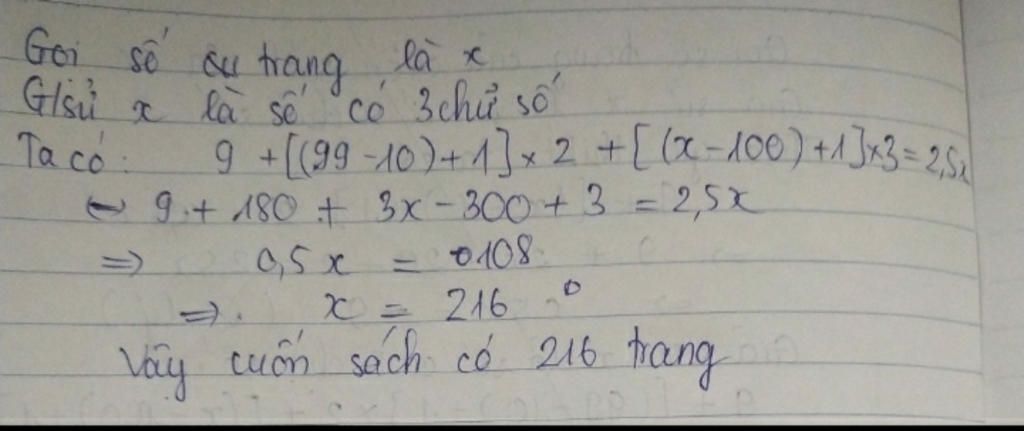 Gọi số cu trang là x
G/sử x là số có 3 chữ số
Ta có: 9 + [(99 - 10) + 1] × 2 + [(x - 100) + 1] × 3 = 2,5x
↔ 9 + 180 + 3x - 300 + 3 = 2,5x
=> 0,5x = 108
=> x = 216
Vậy cuốn sách có 216 trang